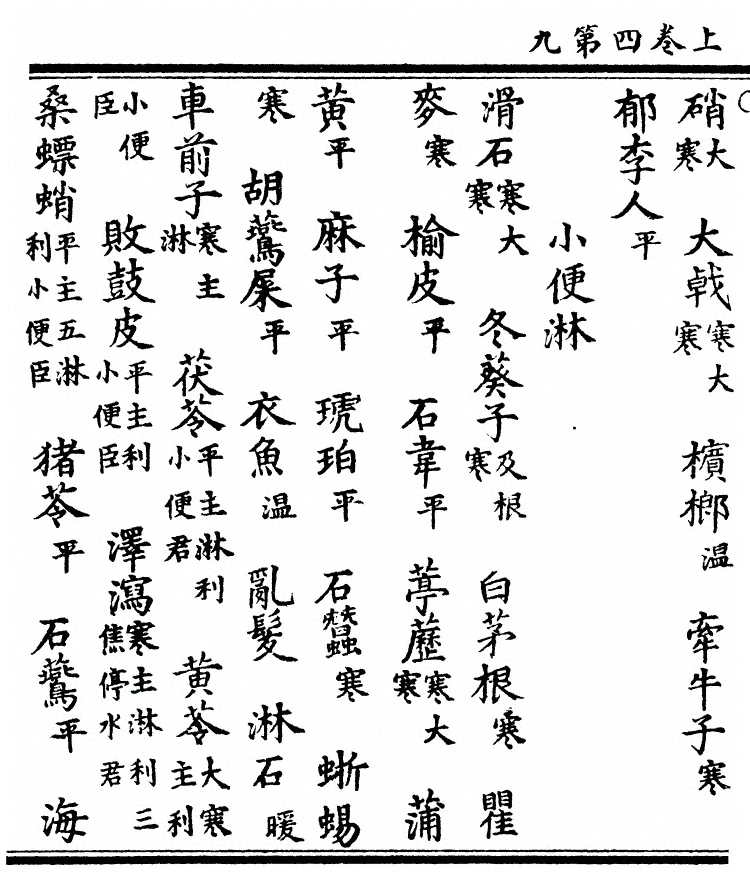 上卷四第九
硝大寒 大戟寒大寒 檳榔温 牽牛子寒
郁李人平
小便淋
滑石寒大寒 冬葵子及根寒 白茅根寒 瞿
麥寒 榆皮平 石韋平 葶藶寒大寒 蒲
黃平 麻子平 琥珀平 石蠶寒 蜥蜴
寒 胡鷰屎平 衣魚温 亂髮 淋石暖
車前子寒主淋 茯苓平主淋利小便君 黃苓大寒主利
小便臣 敗鼓皮平主利小便臣 澤瀉寒主淋利三焦停水君
桑螵蛸平主五淋利小便臣 猪苓平 石鷰平 海